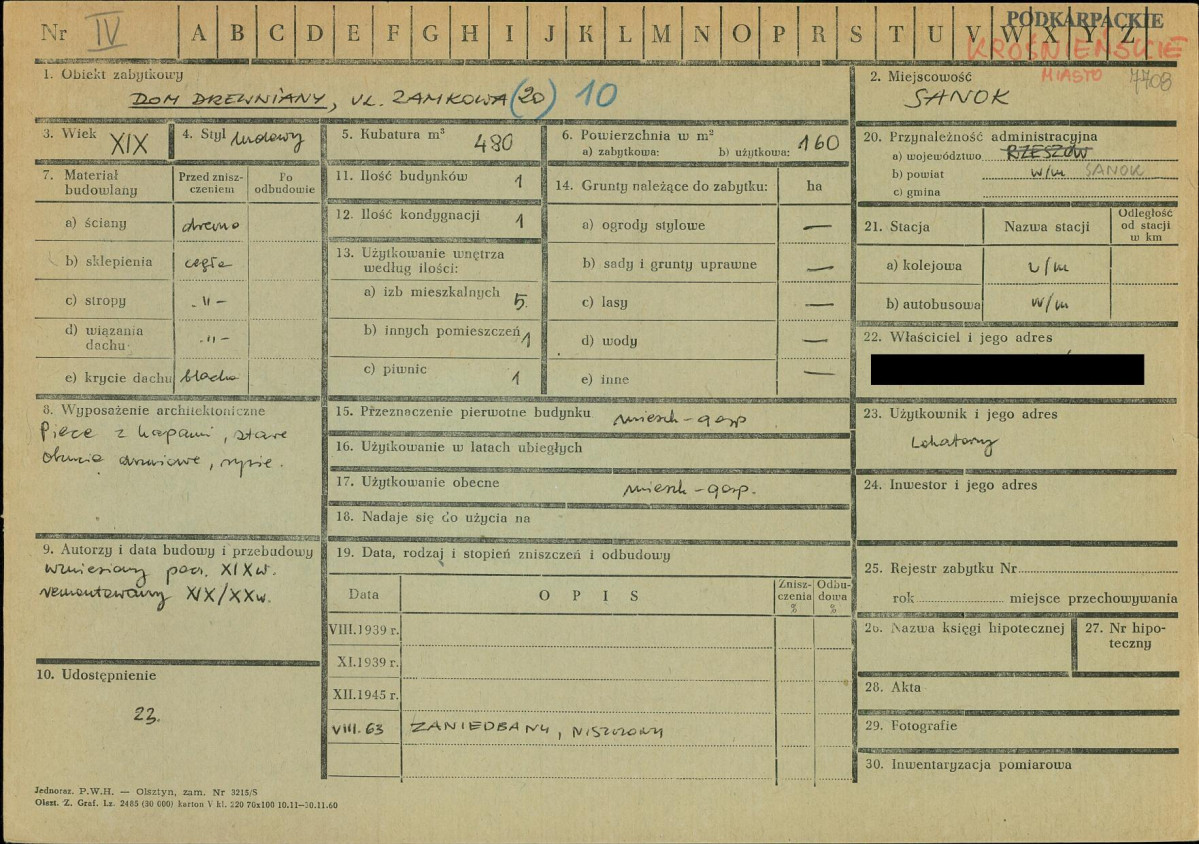 Nr IV A B C D E F G H I J K L M N O P R S T U V W X Y Z
PODKARPACKIE
KROŚNIEŃSKIE
MIASTO 7708
1. Obiekt zabytkowy
DOM DREWNIANY, UL. ZAMKOWA (20) 10
2. Miejscowość
SANOK
3. Wiek XIX
4. Styl ludowy
5. Kubatura m³ 480
6. Powierzchnia w m²
a) zabytkowa: b) użytkowa: 160
20. Przynależność administracyjna
a) województwo RZESZÓW
b) powiat w/m SANOK
c) gmina
7. Materiał budowlany
Przed zniszczeniem
Po odbudowie
a) ściany drewno
b) sklepienia cegła
c) stropy -"-
d) wiązania dachu -"-
e) krycie dachu blacha
11. Ilość budynków 1
12. Ilość kondygnacji 1
13. Użytkowanie wnętrza
według ilości:
a) izb mieszkalnych 5.
b) innych pomieszczeń 1
c) piwnic 1
14. Grunty należące do zabytku: ha
a) ogrody stylowe —
b) sady i grunty uprawne —
c) lasy —
d) wody —
e) inne —
21. Stacja Nazwa stacji Odległość od stacji w km
a) kolejowa w/m
b) autobusowa w/m
22. Właściciel i jego adres
8. Wyposażenie architektoniczne
Piece z kapami, stare
okucia drzwiowe,
15. Przeznaczenie pierwotne budynku miesz-gosp
16. Użytkowanie w latach ubiegłych
17. Użytkowanie obecne miesz-gosp.
18. Nadaje się do użycia na
23. Użytkownik i jego adres
Lokatorzy
24. Inwestor i jego adres
9. Autorzy i data budowy i przebudowy
wzniesiony pocz. XIX w.
remontowany XIX/XX w.
10. Udostępnienie
23.
19. Data, rodzaj i stopień zniszczeń i odbudowy
Data OPIS Zniszczenia % Odbudowa %
VIII.1939 r.
XI.1939 r.
XII.1945 r.
VIII.63 ZANIEDBANY, NISZCZONY
25. Rejestr zabytku Nr
rok miejsce przechowywania
26. Nazwa księgi hipotecznej
27. Nr hipoteczny
28. Akta
29. Fotografie
30. Inwentaryzacja pomiarowa
Jednoraz. P.W.H. — Olsztyn, zam. Nr 3215/S
Olszt. Z. Graf. Lz. 2485 (30 000) karton V kl. 220 70x100 10.11—30.11.60